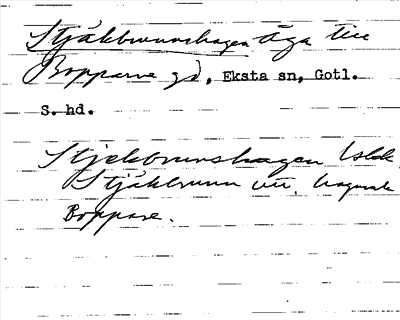 Stjäkbrunnshagen äga till
Bopparve gd, Eksta sn, Gotl.
S. hd.
Stjekbrunshagen
Stjäkbrunn
Boppare.